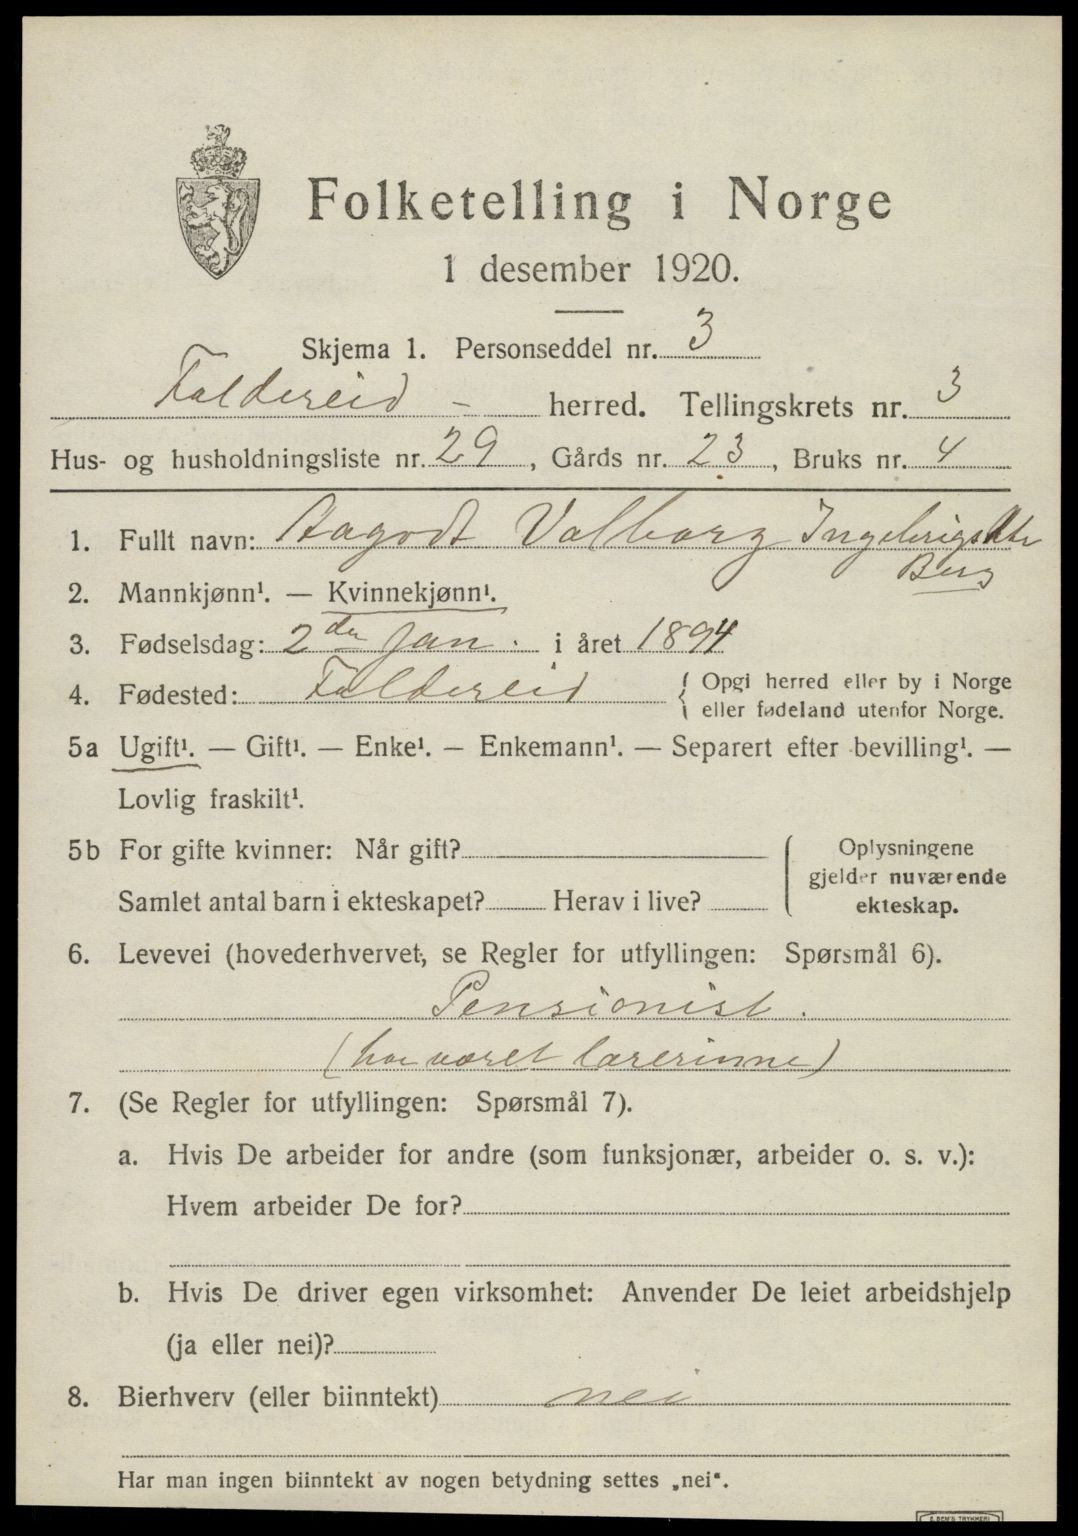 Folketelling i Norge
1 desember 1920.
Skjema 1. Personseddel nr. 3
Foldereid - herred. Tellingskrets nr. 3
Hus- og husholdningsliste nr. 29, Gårds nr. 23, Bruks nr. 4
1. Fullt navn: Aagodt Valborg
Berg
2. Mannkjønn¹. — Kvinnekjønn¹.
3. Fødselsdag: 2den jan. i året 1894
4. Fødested: Foldereid { Opgi herred eller by i Norge
eller fødeland utenfor Norge.
5a Ugift¹. — Gift¹. — Enke¹. — Enkemann¹. — Separert efter bevilling¹. —
Lovlig fraskilt¹.
5b For gifte kvinner: Når gift? { Oplysningene
gjelder nuværende
Samlet antal barn i ekteskapet? Herav i live?
ekteskap.
6. Levevei (hovederhvervet, se Regler for utfyllingen: Spørsmål 6).
Pensionist.
(har været lærerinne)
7. (Se Regler for utfyllingen: Spørsmål 7).
a. Hvis De arbeider for andre (som funksjonær, arbeider o. s. v.):
Hvem arbeider De for?
b. Hvis De driver egen virksomhet: Anvender De leiet arbeidshjelp
(ja eller nei)?
8. Bierhverv (eller biinntekt) nei
Har man ingen biinntekt av nogen betydning settes „nei".